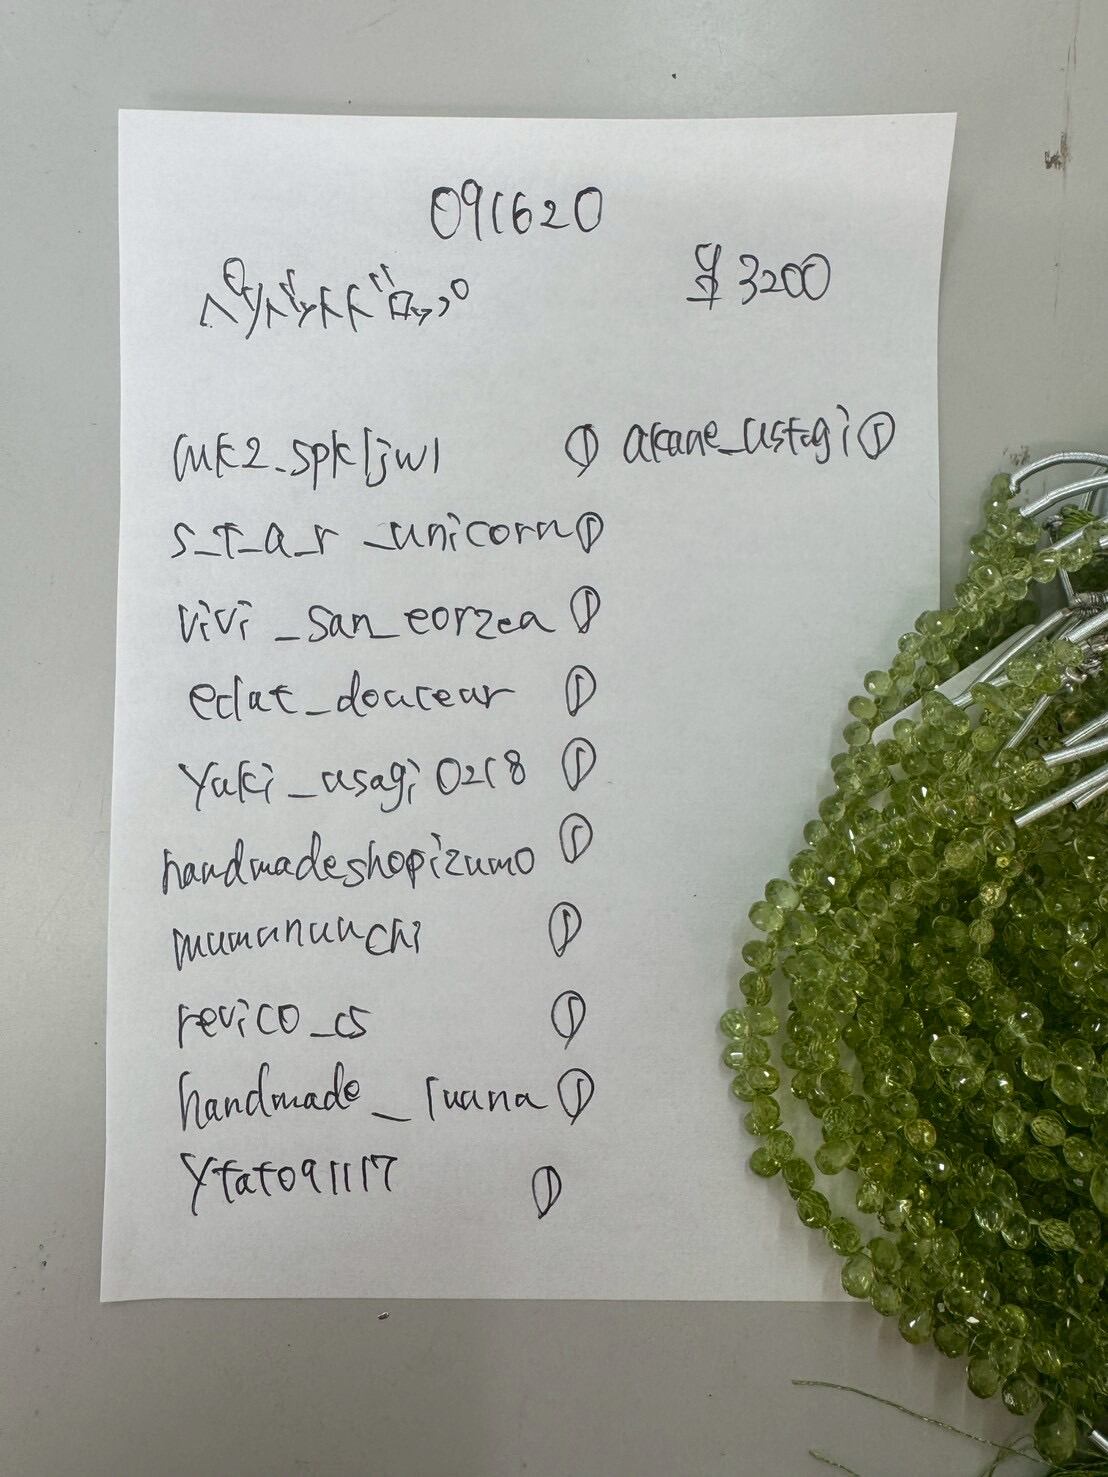 091620
ペリドットドロップ ¥3200
mk2_spkljwl ① akane_usagi ①
s_t_a_r_unicorn ①
vivi_san_eorzea ①
eclat_douceur ①
yuki_usagi0218 ①
handmadeshopizumo ①
mumunuuchi ①
revico_cs ①
handmade_luana ①
ytat091117 ①